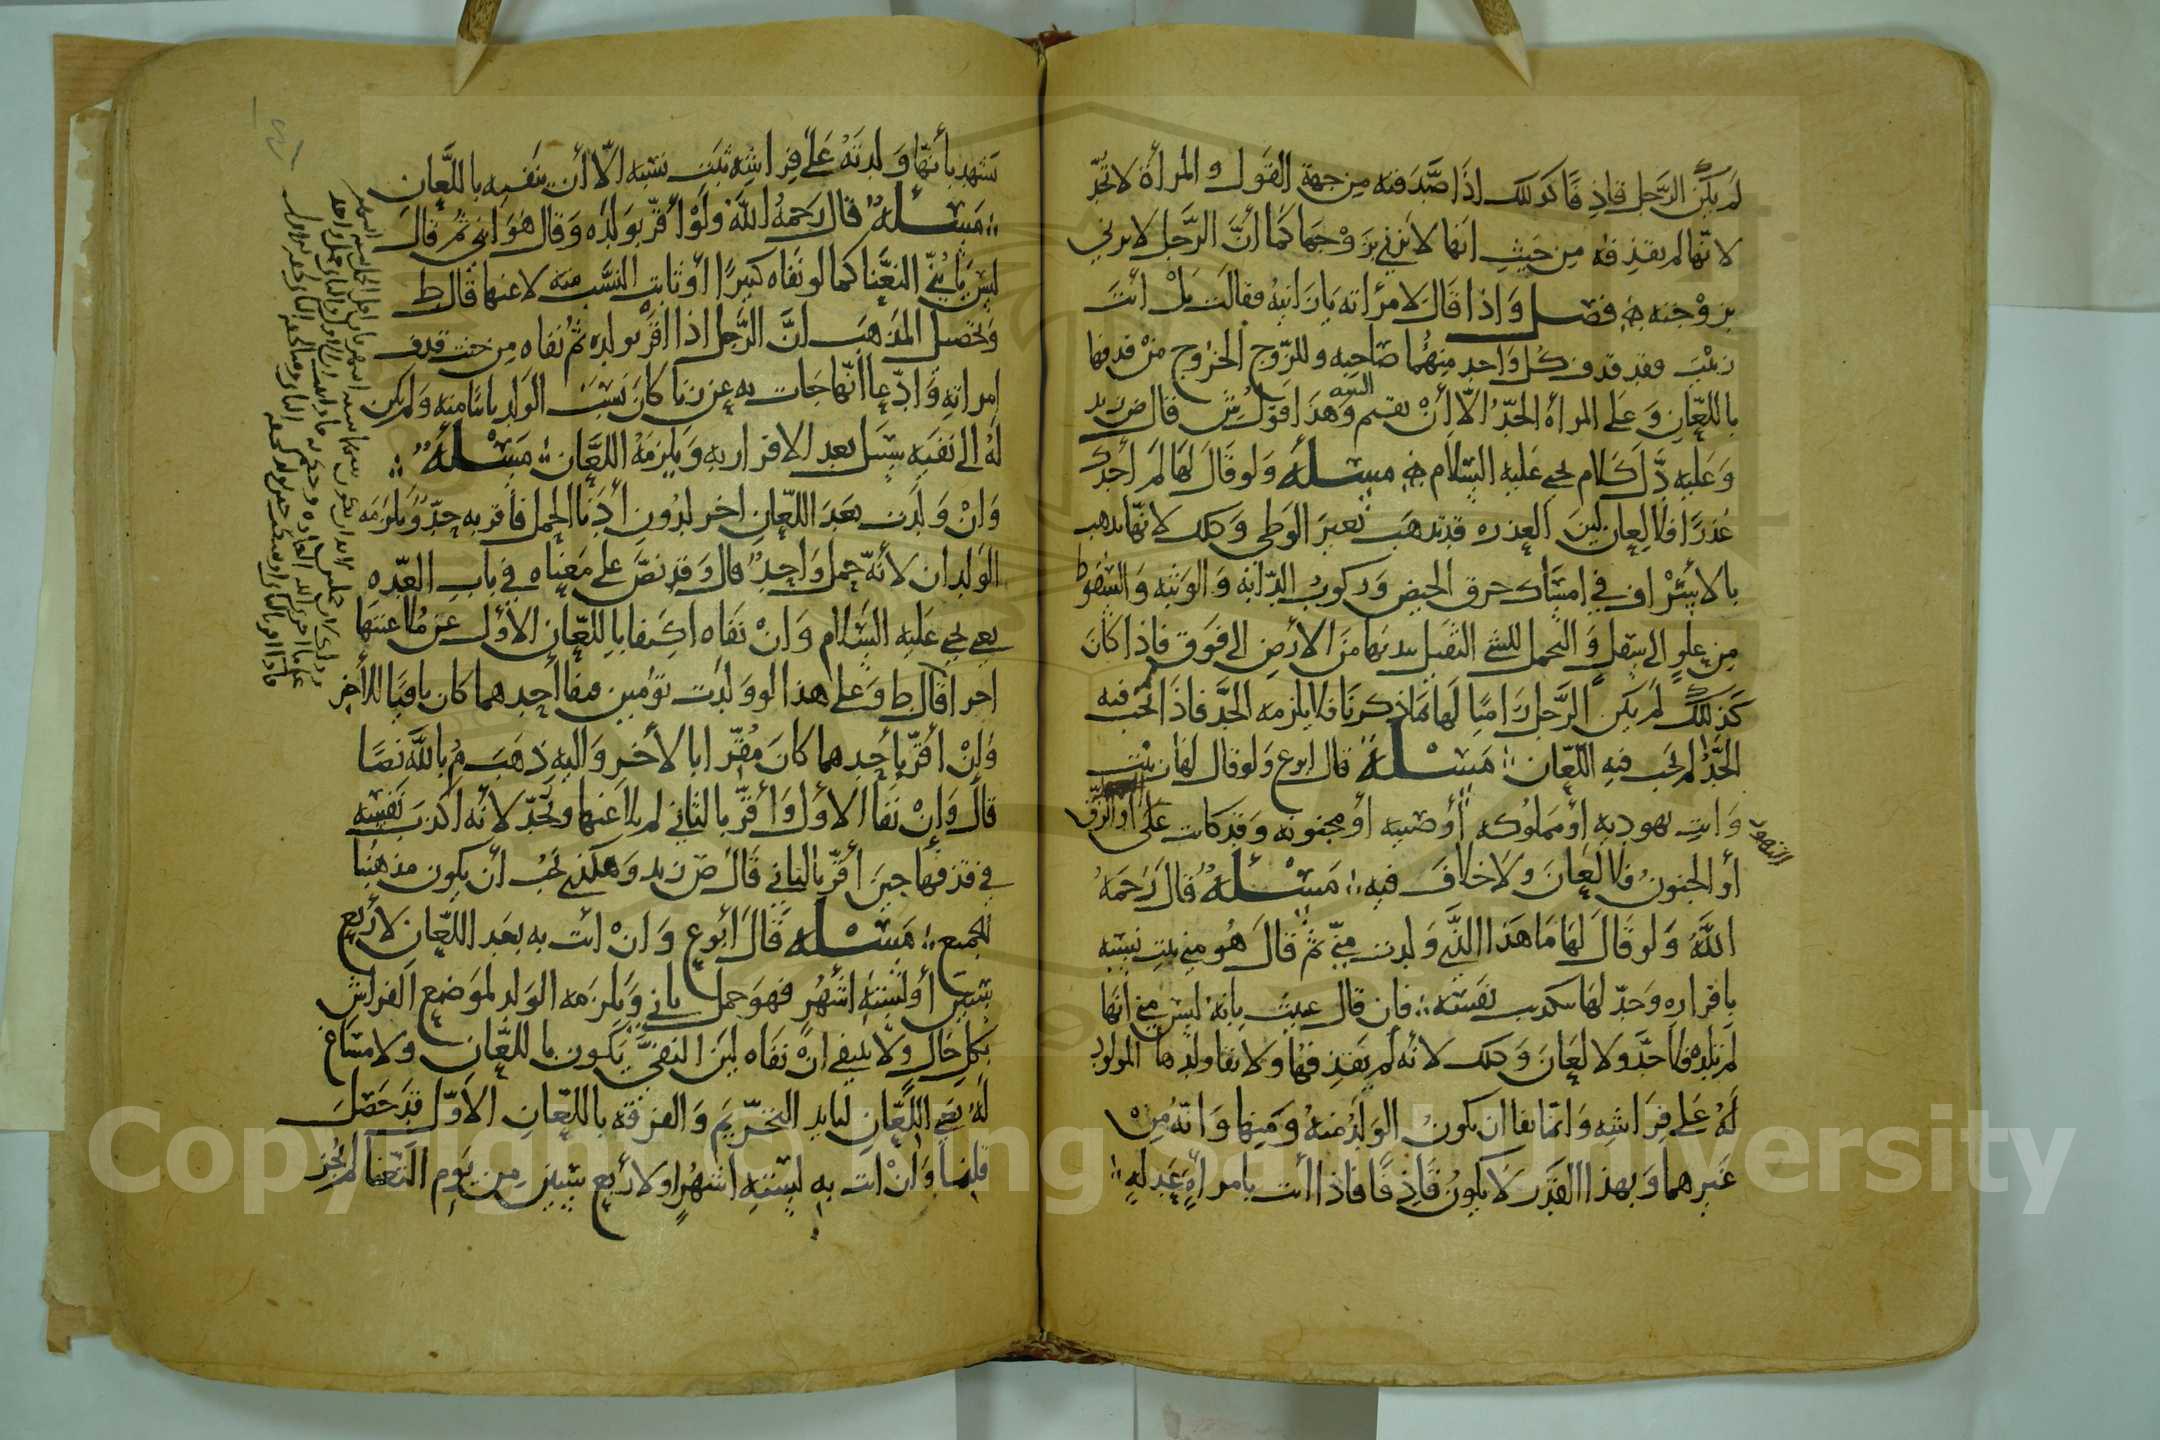 لم يكن الرجل قاذفا كذلك اذا صدقته من جهة القول والمرأة لا تحد
لانها لم تقذفه من حيث انها لا تزني بزوجها كما أن الرجل لا يزني
بزوجته فصل واذا قال لامرأته يا زانيه فقالت بل أنت
زنيت فقد قذف كل واحد منهما صاحبه وللزوج الخروج من قذفها
باللعان وعلى المرأة الحد الا أن تقيم البينه وهذا قول ش قال ض زيد
وعليه دل كلام يحيى عليه السلام مسئلة ولو قال لها لم أجدك
عذرا فلا لعان لين العذره قد تذهب بغير الوطي وذلك لانها تذهب
بالاستنزاف في امساك خرق الحيض وركوب الدابه والوثبه والسقوط
من علو الى سفل والتحمل للشي الثقيل بيديها من الأرض الى فوق فاذا كان
كذلك لم يكن الرجل راميا لها بما ذكرنا فلا يلزمه الحد فاذا لم يجب فيه
الحد لم يجب فيه اللعان مسئلة قال ابو ع ولو قال لها زنيت
وانت يهوديه أو مملوكه أو صبيه أو مجنونه وقد كانت على او الرق
التهود
أو الجنون فلا لعان ولا خلاف فيه مسئلة قال رحمه
الله ولو قال لها ما هذا الذي ولدت مني ثم قال هو مني ثبت نسبه
باقراره وحد لها بكذب نفسه فان قال عنيت بانه ليس مني انها
لم تلده فلا حد ولا لعان وذلك لانه لم يقذفها ولا نفا ولدها المولود
له على فراشه وانما نفا ان يكون الولد منه ومنها وانه من
غيرهما وبهذا القدر لا يكون قاذفا فاذا أتت بامرأة عدله
تشهد بأنها ولدته على فراشه ثبت نسبه الا أن ينفيه باللعان
مسئلة قال رحمه الله ولو أقر بولده وقال هو ابني ثم قال
ليس بابني التعنا كما لو نفاه كبيرا أو ثابت النسب منه لاعنها قال ط
وتحصيل المذهب ان الرجل اذا اقر بولده ثم نفاه من حيث قذف
امراته وادعا أنها جات به عن زنا كان نسب الولد ثابتا منه ولم يكن
له الى نفيه سبيل بعد الاقرار به ويلزمه اللعان مسئلة
وان ولدت بعد اللعان اخر لدون أدنا الحمل فاقر به حد ويلزمه
الولدان لأنه حمل واحد قال وقد نص على معناه في باب العده
يعني يحيى عليه السلام وان نفاه اكتفا باللعان الأول عن ملاعنتها
اخرا قال ط وعلى هذا لو ولدت توأمين فنفا أحدهما كان نافيا للأخر
وان أقر بأحدهما كان مقرا بالأخر واليه ذهب م بالله نصا
قال وان نفا الأول وأقر بالثاني لم يلاعنها ويحد لانه اكذب نفسه
في قذفها حين أقر بالثاني قال ض زيد وهكذي يجب أن يكون مذهبنا
للجميع مسئلة قال أبو ع وان أتت به بعد اللعان لأربع
سنين أو لستة أشهر فهو حمل ثاني ويلزمه الولد لموضع الفراش
بكل حال ولا ينتفي ان نفاه لين النفي يكون باللعان ولا مساغ
له بعد اللعان لتأبد التحريم والفرقة باللعان الأول قد حصل
قلنا وان اتت به لستة أشهر او لأربع سنين من يوم التعنا لم يجز
Copyright © King Saud University